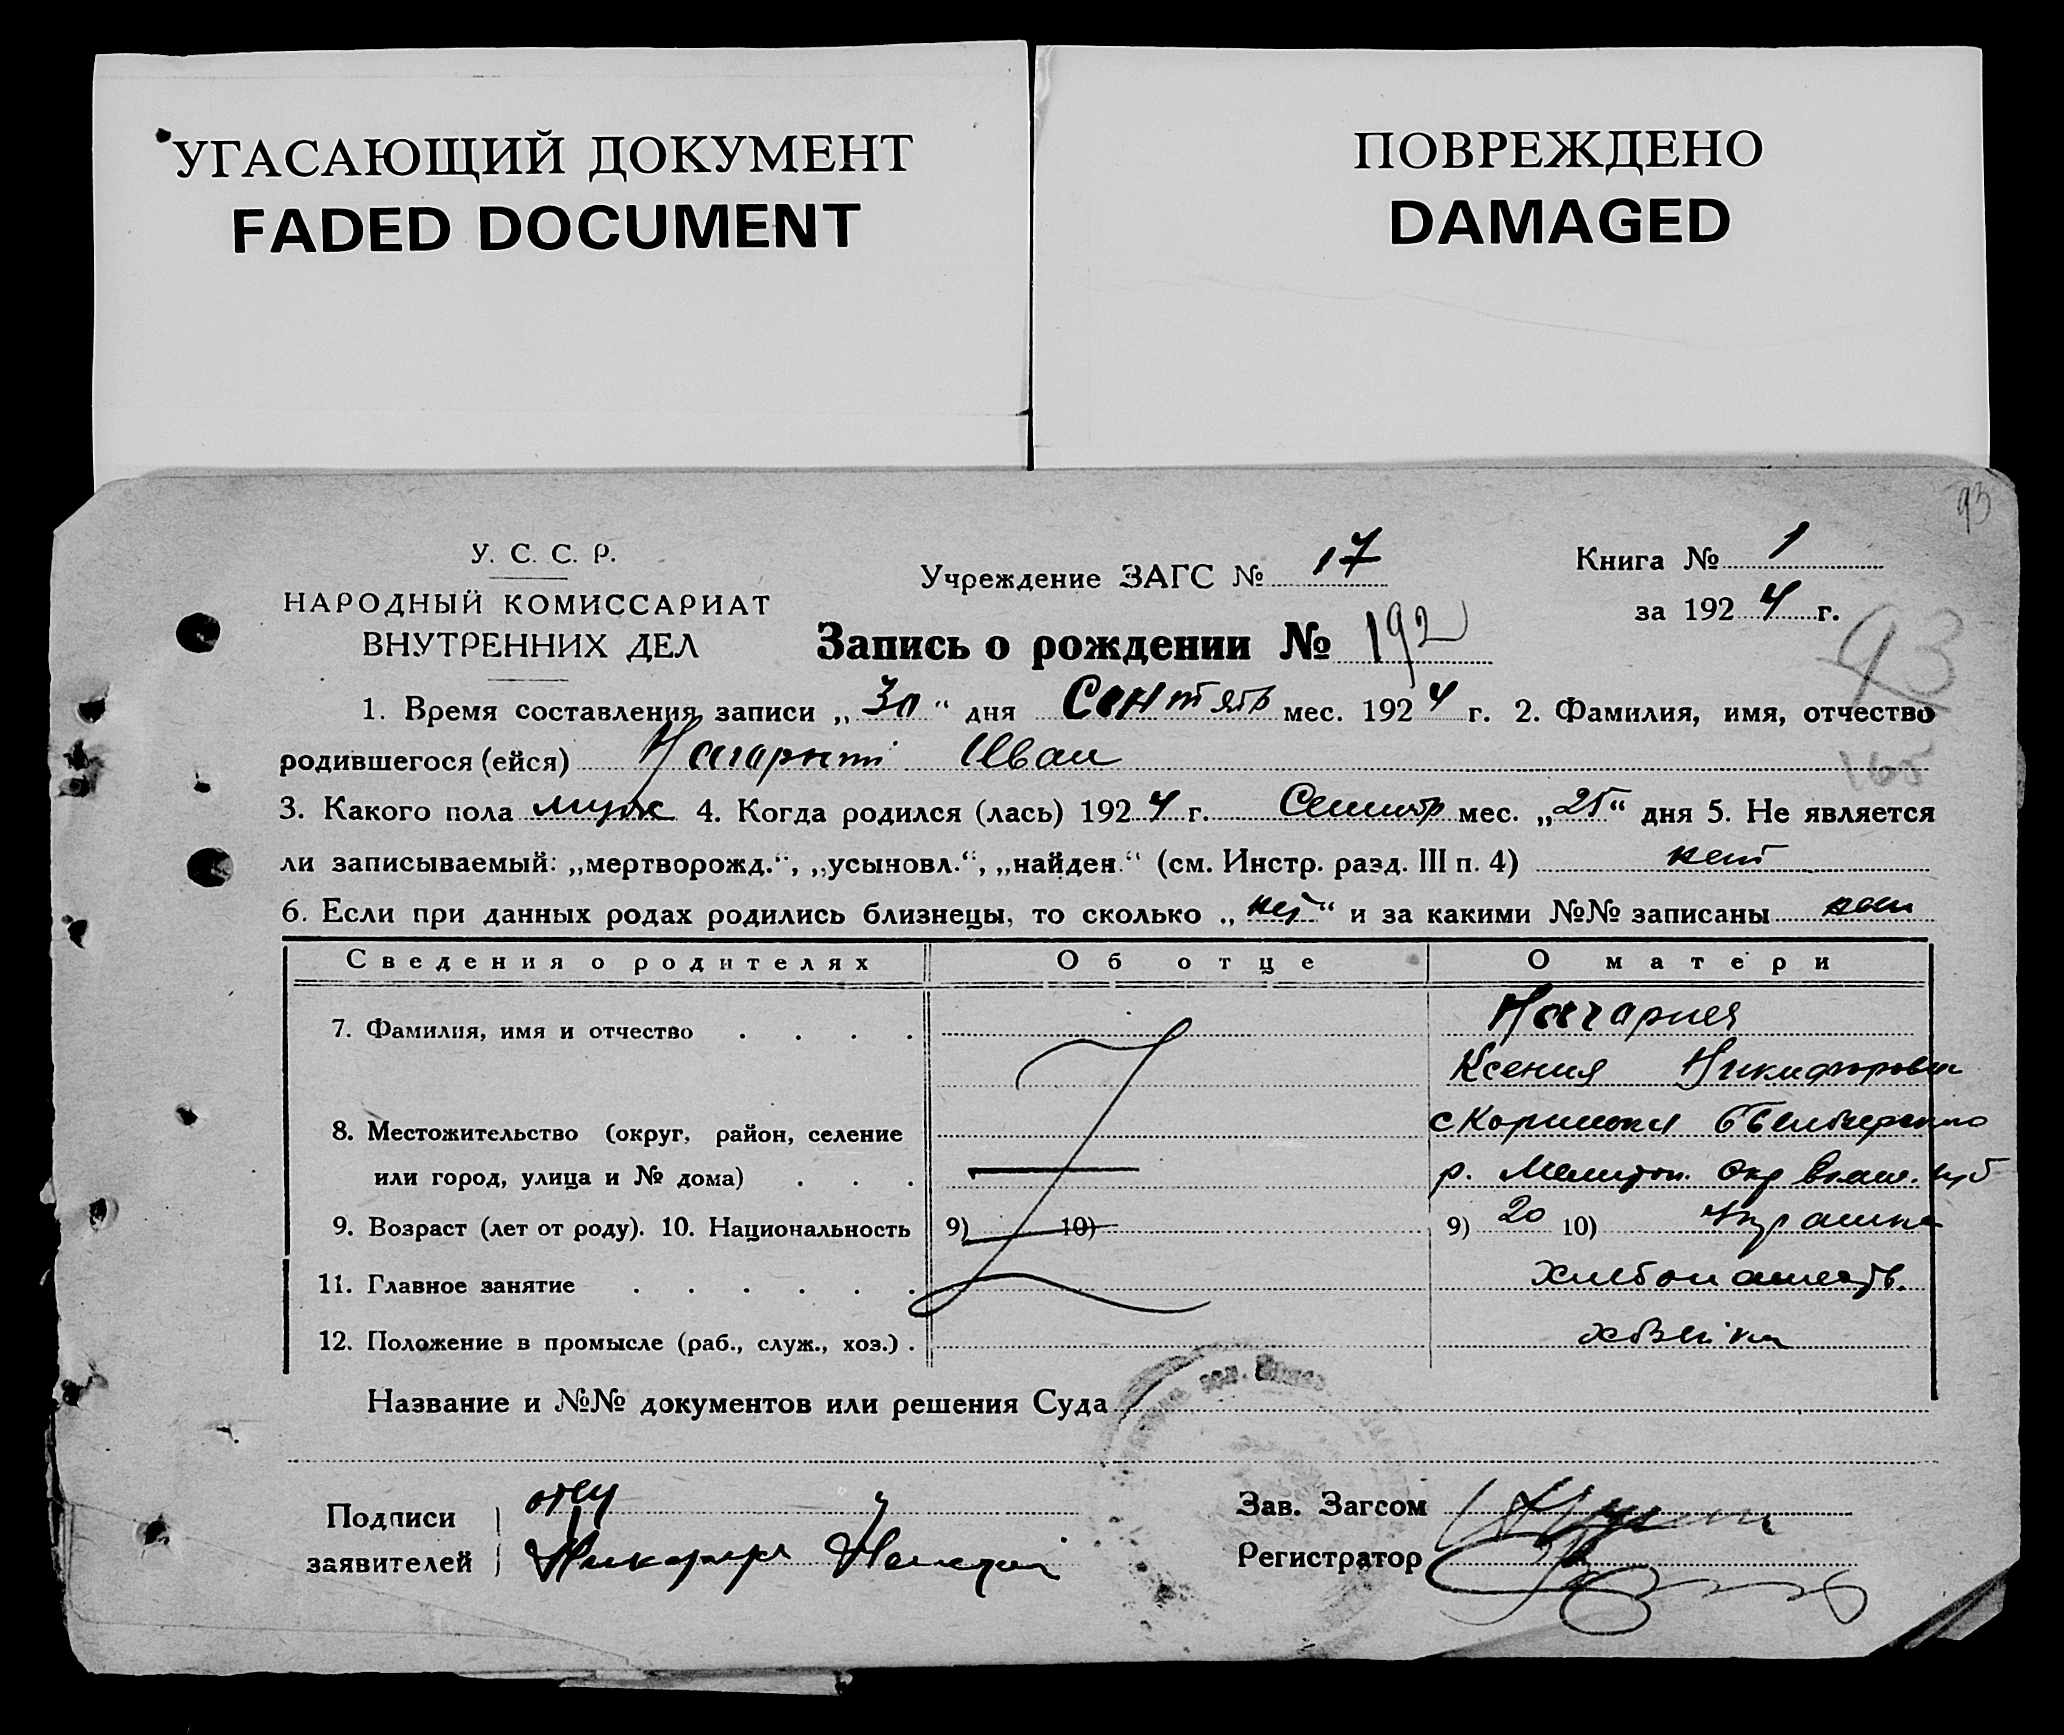 УГАСАЮЩИЙ ДОКУМЕНТ
FADED DOCUMENT
ПОВРЕЖДЕНО
DAMAGED
93
У. С. С. Р.
НАРОДНЫЙ КОМИССАРИАТ
ВНУТРЕННИХ ДЕЛ
Учреждение ЗАГС № 17
Книга № 1
за 1924 г.
Запись о рождении № 192
93
1. Время составления записи „30“ дня Сентябр мес. 1924 г. 2. Фамилия, имя, отчество
родившегося (ейся) Иван
165
3. Какого пола муж 4. Когда родился (лась) 1924 г. Сентябр мес. „25“ дня 5. Не является
ли записываемый: „мертворожд.“, „усыновл.“, „найден.“ (см. Инстр. разд. III п. 4) нет
6. Если при данных родах родились близнецы, то сколько „нет“ и за какими №№ записаны нет
Сведения о родителях Об отце О матери
7. Фамилия, имя и отчество
Ксения Никифоровн
8. Местожительство (округ, район, селение
или город, улица и № дома) р. Мелитоп. Окр
9. Возраст (лет от роду). 10. Национальность 9) 10) 9) 20 10)
11. Главное занятие
12. Положение в промысле (раб., служ., хоз.)
Название и №№ документов или решения Суда
Подписи
заявителей Никифор
Зав. Загсом
Регистратор